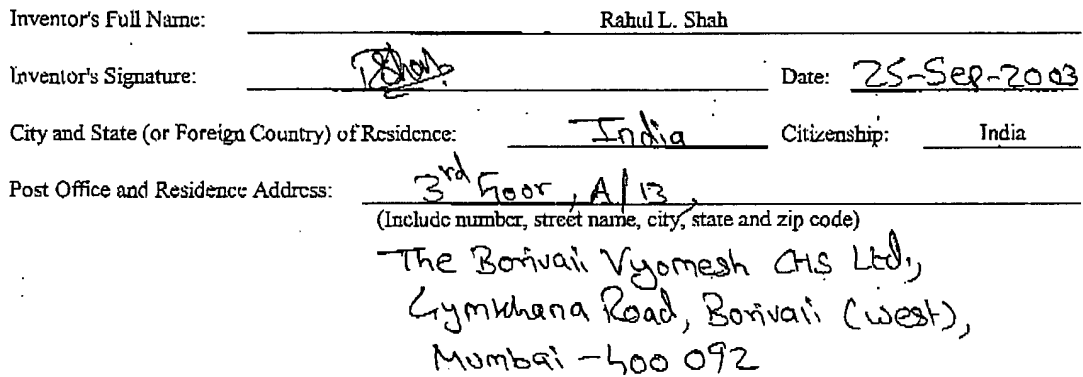 Inventor's Full Name: Rahul L. Shah
Inventor's Signature: RShah Date: 25-Sep-2003
City and State (or Foreign Country) of Residence: India Citizenship: India
Post Office and Residence Address: 3rd floor, A/13,
(Include number, street name, city, state and zip code)
The Borivali Vyomesh CHS Ltd.,
Gymkhana Road, Borivali (west),
Mumbai - 400 092